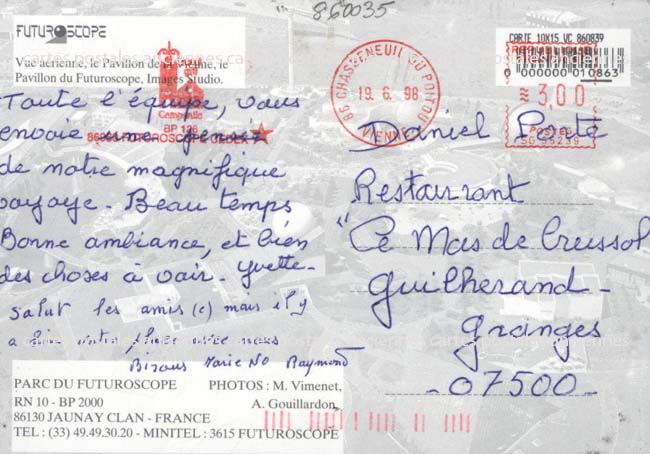 860035
FUTUROSCOPE
Vue aérienne, le Pavillon de la Vienne, le
Pavillon du Futuroscope, Images Studio.
BP 126
86960 FUTUROSCOPE CEDEX
Toute l'équipe, vous
envoie une pensée
de notre magnifique
voyage - Beau temps
Bonne ambiance, et bien
des choses à voir - Yvette -
Salut les amis (e) mais il y
a
Bisous Marie No Raymond
PARC DU FUTUROSCOPE
RN 10 - BP 2000
86130 JAUNAY CLAN - FRANCE
TEL : (33) 49.49.30.20 - MINITEL : 3615 FUTUROSCOPE
PHOTOS : M. Vimenet,
A. Gouillardon,
86 CHASSENEUIL DU POITOU
19. 6. 98
VIENNE
CARTE 10X15 VC 860839
0 000000 010863
REPUBLIQUE FRANCAISE
≈ 3,00
POSTES
Daniel Porte
Restaurant
"Le Mas de Crussol
Guilherand-
Granges
- 07500 -